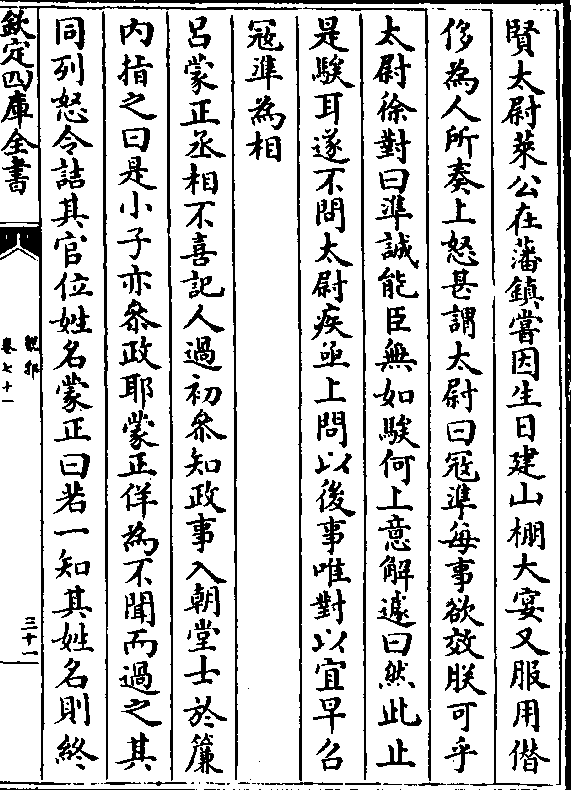 賢太尉萊公在藩鎮嘗因生日建山棚大宴又服用僣
侈為人所奏上怒甚謂太尉曰冦準每事欲效朕可乎
太尉徐對曰準誠能臣無如騃何上意解遽曰然此止
是騃耳遂不問太尉疾亟上問以後事唯對以宜早召
冦準為相
呂蒙正丞相不喜記人過初叅知政事入朝堂士於簾
内指之曰是小子亦叅政耶蒙正佯為不聞而過之其
同列怒令詰其官位姓名蒙正曰若一知其姓名則終
欽定四庫全書
卷七十一
三十一